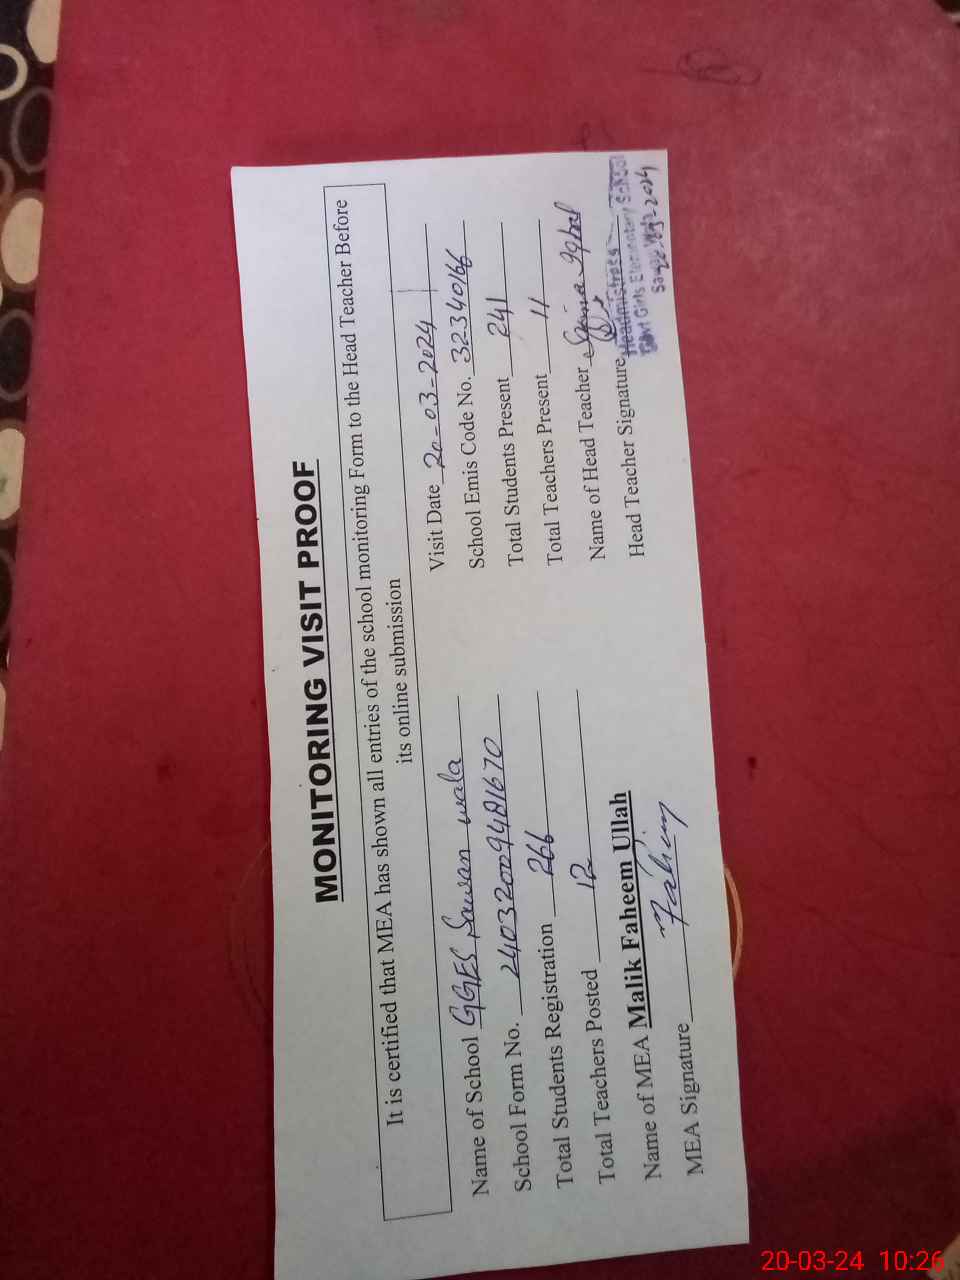 MONITORING VISIT PROOF
It is certified that MEA has shown all entries of the school monitoring Form to the Head Teacher Before
its online submission
Name of School GGES Sawan wala
Visit Date 20-03-2024
School Form No. 24032009481670
School Emis Code No. 32340166
Total Students Registration 266
Total Students Present 241
Total Teachers Posted 12
Total Teachers Present 11
Name of MEA Malik Faheem Ullah
Name of Head Teacher Iqbal
MEA Signature Fahim
Head Teacher Signature
Headmistress
Govt Girls Elementary School
Sawan Wala
20-03-2024
20-03-24 10:26